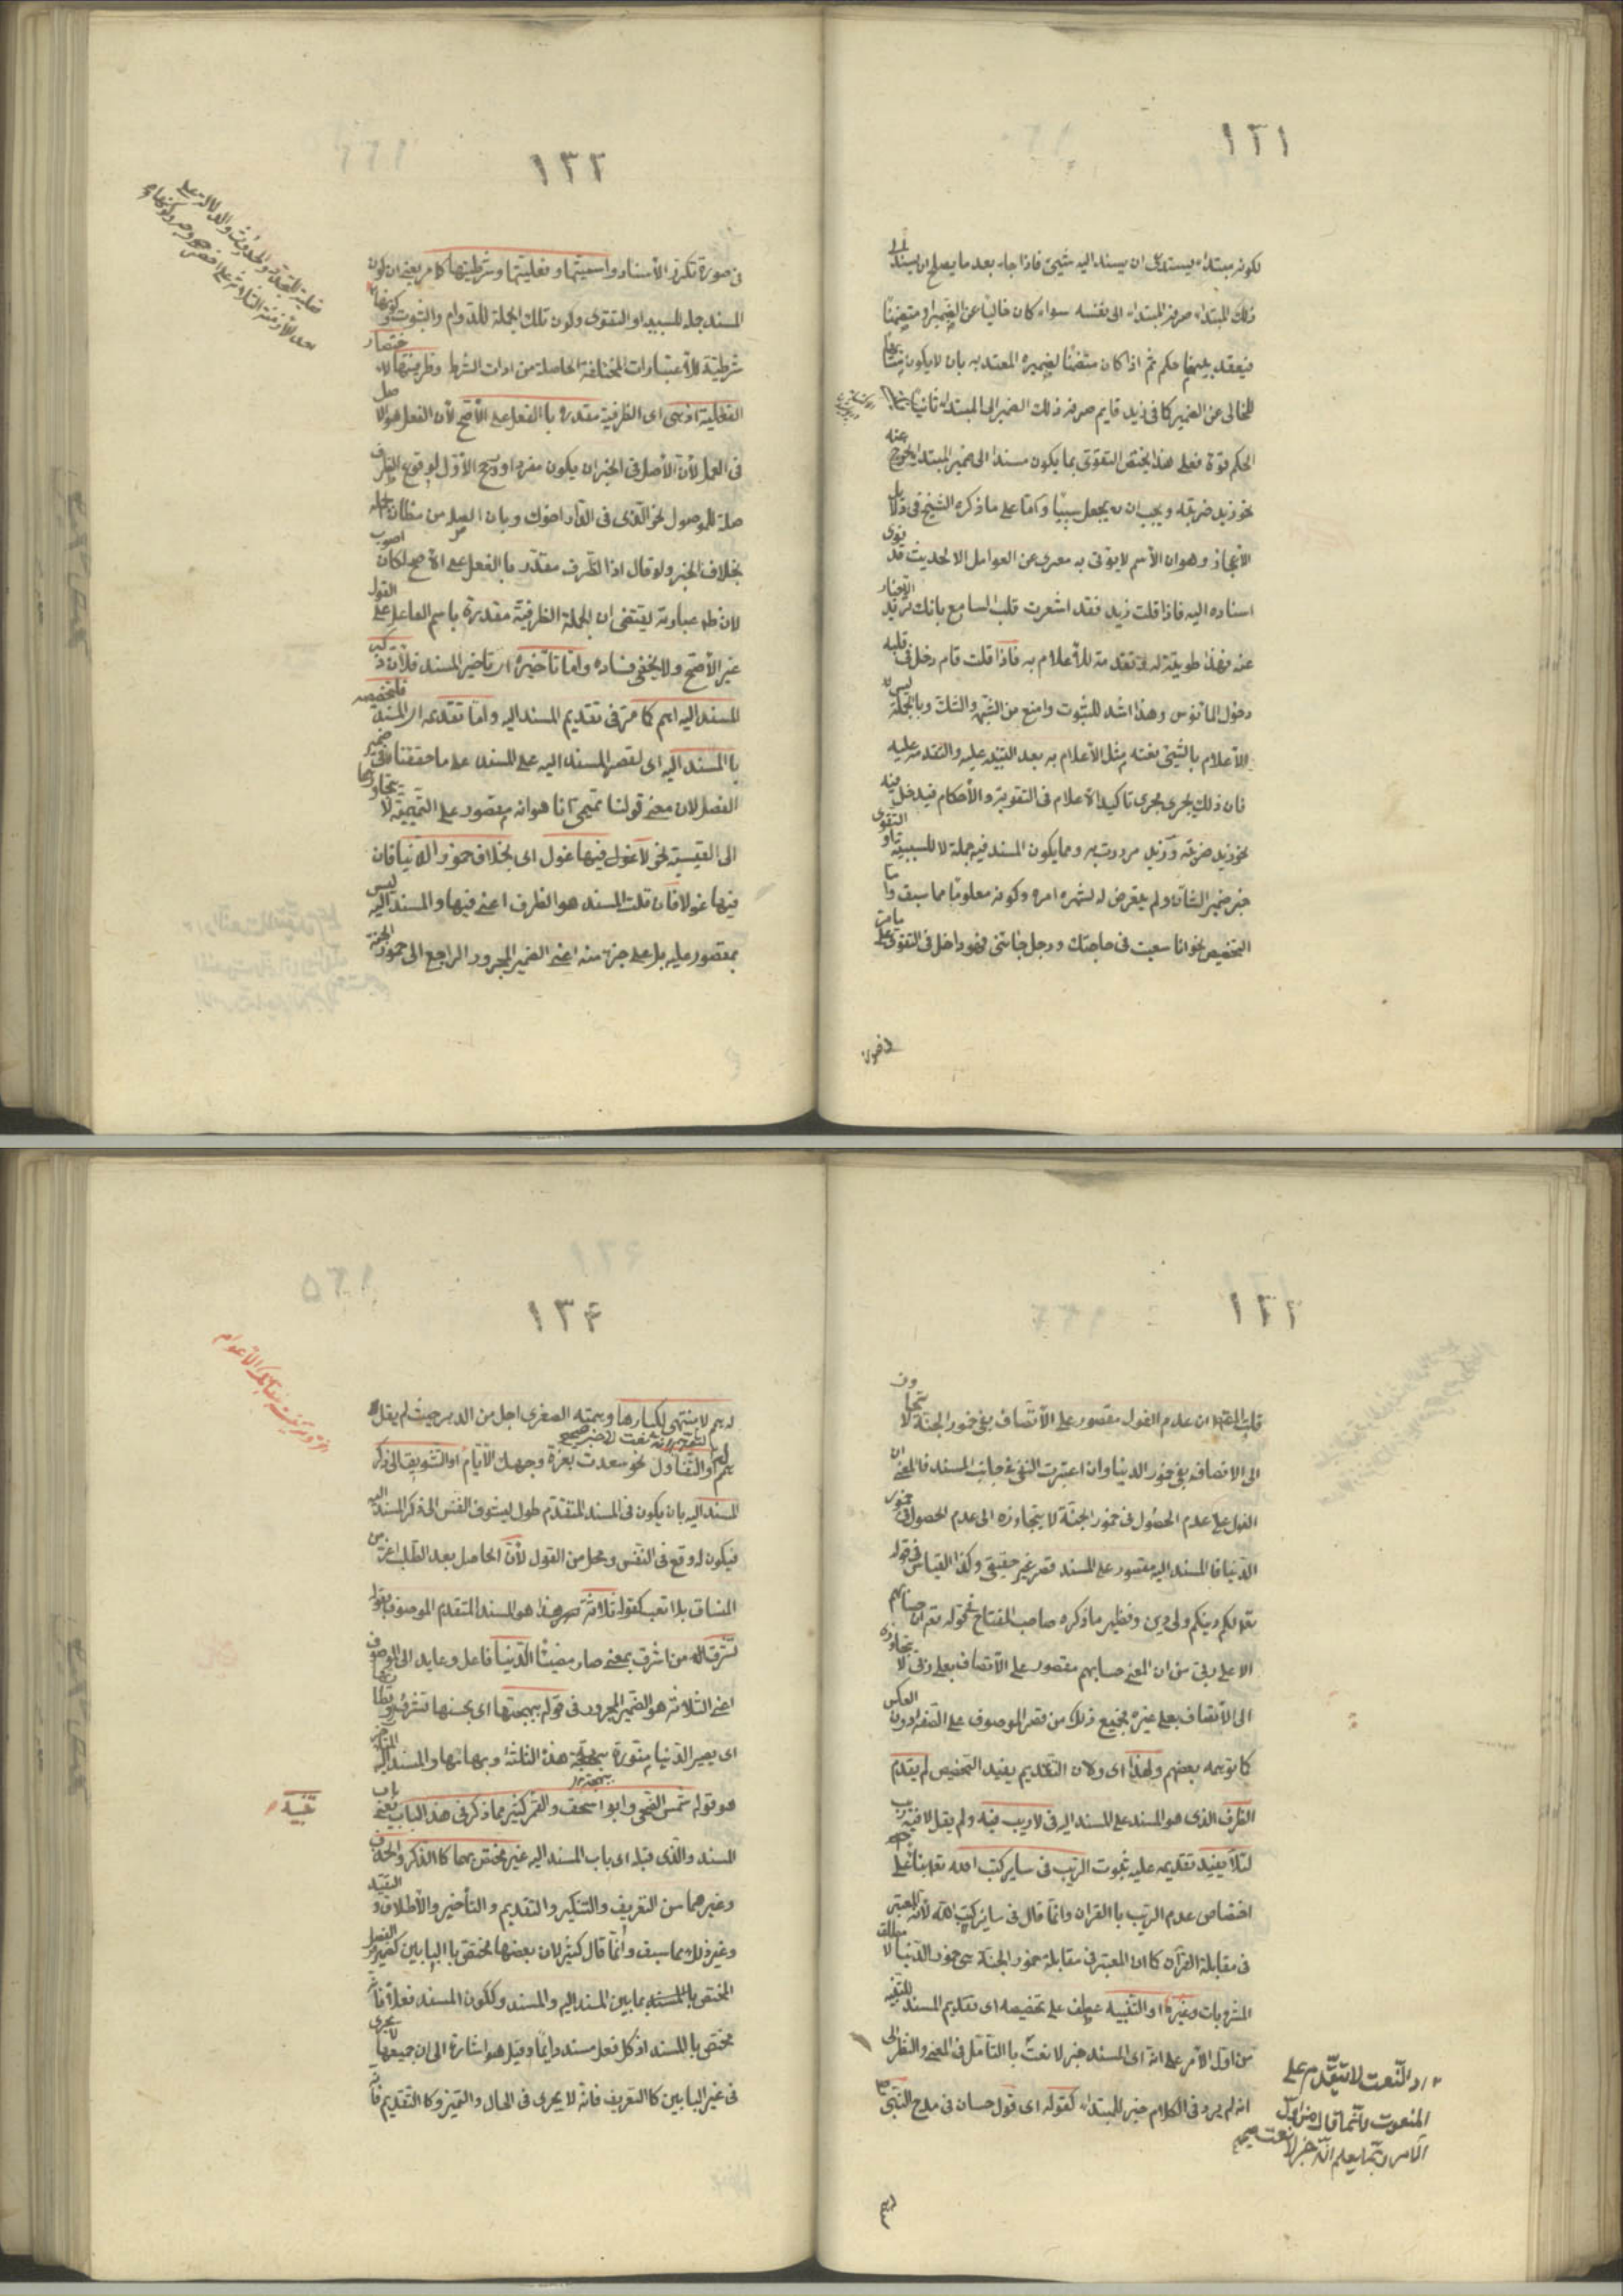 ١٣١
لكونه مبتداء يستدعى ان يسند اليه شيئ فاذا جاء بعد ما يصلح ان يسند الى
ذلك المبتداء صرفه المبتداء الى نفسه سواء كان خاليا عن الضمير او متضمنا
فينعقد بينهما حكم ثم اذا كان متضمنا لضميره المعتد به بان لا يكون مشابها
للخالى عن الضمير كما فى زيد قايم صرفه ذلك الضمير الى المبتداء ثانيا
الحكم قوة فعلى هذا يختص التقوى بما يكون مسندا الى ضمير المبتداء ويخرج عنه
نحو زيد ضربته ويجب ان يجعل سببيا واما على ما ذكره الشيخ فى دلايل
الاعجاز وهو ان الاسم لا يؤتى به معرى عن العوامل الا لحديث قد نوى
اسناده اليه فاذا قلت زيد فقد اشعرت قلب السامع بانك تريد الاخبار
عنه فهذا طوطية له وتقدمة للاعلام به فاذا قلت قام دخل فى قلبه
دخول المأنوس وهذا اشد للثبوت وامنع من الشبهة والشك وبالجملة ليس
الاعلام بالشيئ بغتة مثل الاعلام به بعد التنبيه عليه والتقدمة عليه
فان ذلك يجرى مجرى تاكيد الاعلام فى التقوية والأحكام فيدخل فيه
نحو زيد ضربته وزيد مررت به ومما يكون المسند فيه جملة لا للسببية او التقوى
خبر ضمير الشان ولم يتعرض له لشهرة امره وكونه معلوما مما سبق واما
التخصيص نحو انا سعيت فى حاجتك ورجل جائنى فهو داخل فى التقوى على ما مر
١٣٢
فى صورة تكرر الأسناد واسميتها وفعليتها وشرطيتها كما مر يعنى ان كون
المسند جملة للسببية او التقوى وكون تلك الجملة للدوام والثبوت وكونها
شرطية للاعتبارات المختلفة الحاصلة من ادات الشرط وظرفيتها لاختصار
الفعلية اذ هى اى الظرفية مقدرة با الفعل على الأصح لأن الفعل هو الاصل
فى العمل لأن الأصل فى الخبر ان يكون مفردا ورجح الأول لوقوع الظرف
صلة للموصول نحو الذى فى الدار اخوك وبان الصلة من مظان الجملة
بخلاف الخبر ولو قال اذا الظرف مقدر با الفعل على الاصح لكان اصوب
لان ظاهر عبارته يقتضى ان الجملة الظرفية مقدرة باسم الفاعل على القول
غير الأصح ولا يخفى فساده واما تأخيره اى تاخير المسند فلأن ذكر
المسند اليه اهم كما مر فى تقديم المسند اليه واما تقديمه اى المسند فلتخصيصه
با المسند اليه اى لقصر المسند اليه على المسند على ما حققنا فى ضمير
الفصل لان معنى قولنا تميمى انا هو انه مقصور على التميمية لا يتجاوزها
الى القيسية نحو لا فيها غول اى بخلاف خمور الدنيا فان
فيها غولا فان قلت المسند هو الظرف اعنى فيها والمسند اليه ليس
بمقصور عليه بل على جزء منه اعنى الضمير المجرور الراجع الى خمور الجنة
١٣٣
قلت المقصود ان عدم الغول مقصور على الأتصاف بفى خمور الجنة لا يتجاوز
الى الاتصاف بفى خمور الدنيا وان اعتبرت النفى فى جانب المسند فالمعنى ان
الغول على عدم الحصول فى خمور الجنة لا يتجاوزه الى عدم الحصول فى خمور
الدنيا فا المسند اليه مقصور على المسند قصر غير حقيقى وكذا القياس فى قوله
تعالى لكم دينكم ولى دين ونظير ما ذكره صاحب المفتاح فى قوله تعالى ان حسابهم
الا على ربى من ان المعنى حسابهم مقصور على الأتصاف بعلى ربى لا يتجاوزه
الى الأتصاف بعلى غيره فجميع ذلك من قصر الموصوف على الصفة دون العكس
كما توهمه بعضهم ولهذا اى ولان التقديم يفيد التخصيص لم يقدم
الظرف الذى هو المسند على المسند اليه فى لاريب فيه ولم يقل لا فيه ريب
لئلا يفيد تقديمه عليه ثبوت الريب فى ساير كتب الله تعالى بناء على
اختصاص عدم الريب با القران وانما قال فى ساير كتب الله لأنه المعتبر
فى مقابلة القرآن كما ان المعتبر فى مقابلة خمور الجنة هى خمور الدنيا لا مطلق
المشروبات وغيرها او التنبيه عطف على تخصيصه اى تقديم المسند للتنبيه
من اول الأمر على انه اى المسند خبر لا نعت با التأمل فى المعنى والنظر الى
انه لم يرد فى الكلام خبر للمبتداء كقوله اى قول حسان فى مدح النبى
اذ النعت لا يتقدم على
المنعوت وانما قال من اول
الامر
له همم
١٣٤
له همم لا منتهى لكبارها وهمته الصغرى اجل من الدهر حيث لم يقل
همم له او التفاول نحو سعدت بغرة وجهك الأيام او التشويق الى ذكر
المسند اليه بان يكون فى المسند المتقدم طول يشوق النفس الى ذكر المسند اليه
فيكون له وقع فى النفس ومحل من القبول لأن الحاصل بعد الطلب اعز من
المنساق بلا تعب كقوله ثلاثة هذا هو المسند المتقدم الموصوف بقوله
تشرق من اشرق بمعنى صار مضيئا الدنيا فاعل وعايد الى الموصوف
اعنى الثلاثة هو الضمير المجرور فى قوله ببهجتها اى بحسنها
اى يصير الدنيا منورة ببهجة هذه الثلثة وبهائها والمسند اليه المتأخر
هو قوله شمس الضحى وابو اسحق والقمر كثير مما ذكر فى هذ الباب يعنى باب
المسند والذى قبله اى باب المسند اليه غير مختص بهما كا الذكر والحذف
وغيرهما من التعريف والتنكير والتقديم والتأخير والأطلاق والتقييد
وغير ذلك مما سبق وانما قال كثير لان بعضها مختص با البابين كضمير الفصل
المختص بما بين المسند اليه والمسند وككون المسند فعلا فانه
مختص با المسند اذ كل فعل مسند دايما وقيل هو اشارة الى ان جميعها لا يجرى
فى غير البابين كا التعريف فانه لا يجرى فى الحال والتميز وكا التقديم فانه
تنبيه